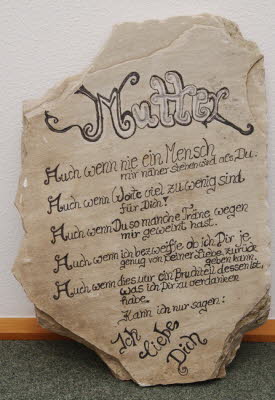 Mutter
Auch wenn nie ein Mensch
mir näher stehen wird als Du.
Auch wenn Worte viel zu wenig sind
für Dich!
Auch wenn Du so manche Träne wegen
mir geweint hast.
Auch wenn ich bezweifle ob ich Dir je
genug von Deiner Liebe zurück
geben kann.
Auch wenn dies nur ein Bruchteil dessen ist,
was ich Dir zu verdanken
habe.
Kann ich nur sagen:
Ich
liebe
Dich